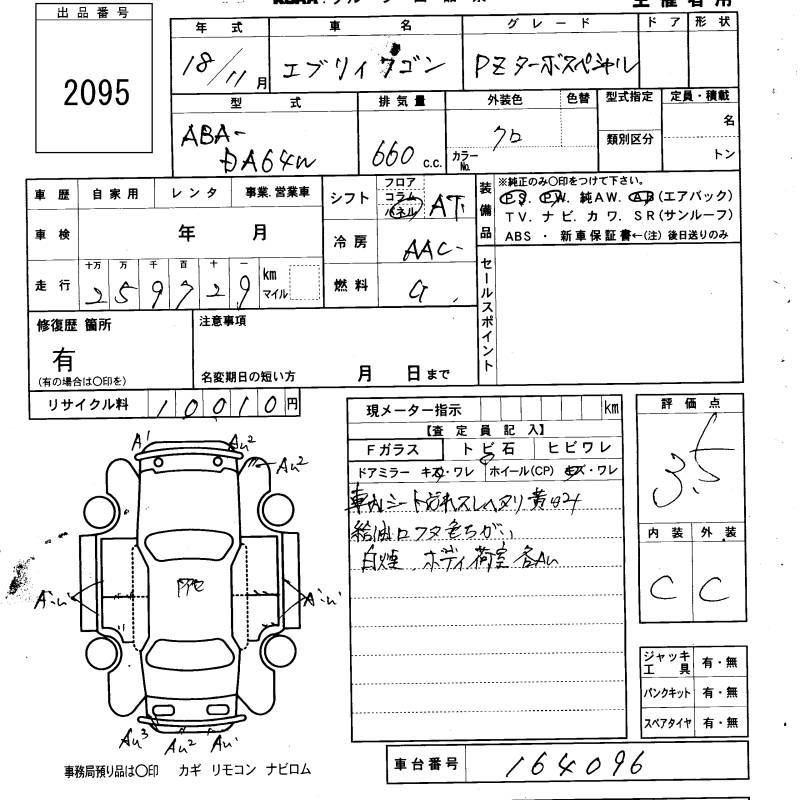 出品番号
2095
年 式 車 名 グ レ ー ド ド ア 形 状
18/11月 エブリィワゴン PZターボスペシャル
型 式 排 気 量 外装色 色替 型式指定 定員・積載
ABA-
DA64W 660 c.c. クロ カラーNo. 類別区分 名
トン
車 歴 自 家 用 レ ン タ 事業.営業車
車 検 年 月
走 行 十万 万 千 百 十 一 km マイル
259729
シフト フロア コラム パネル AT
冷 房 AAC
燃 料 G
装備品
※純正のみ〇印をつけて下さい。
P.S. P.W. 純AW. AB(エアバック)
TV. ナビ. カワ. SR(サンルーフ)
ABS ・ 新車保証書←(注) 後日送りのみ
セールスポイント
修復歴 箇所
有
(有の場合は〇印を)
注意事項
名変期日の短い方 月 日まで
リサイクル料 10010円
現メーター指示 km
【査 定 員 記 入】
Fガラス ト ビ 石 ヒ ビ ワ レ
ドアミラー キズ・ワレ ホイール(CP) キズ・ワレ
車内シート汚れスレヘタリ
給油口フタ色ちがい
白煙 ボディ荷室 各AU
評 価 点
3.5
内 装 外 装
C C
ジャッキ工具 有・無
パンクキット 有・無
スペアタイヤ 有・無
A1 AU2
AU2
AU3 AU2
事務局預り品は〇印 カギ リモコン ナビロム
車台番号 164096